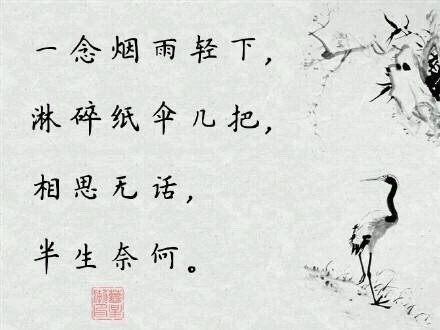 一念烟雨轻下，
淋碎纸伞几把，
相思无话，
半生奈何。